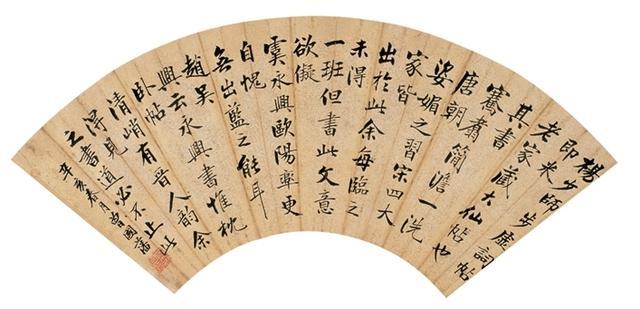 楊少師步虛詞帖
即老米
家藏大仙帖也
其書
騫翥簡澹一洗
唐朝
姿媚之習宋四大
家皆
出於此余每臨之
未得
一班但書此文意
欲儗
虞永興歐陽率更
自愧
無出藍之能耳
趙吳
興云永興書惟枕
臥帖有晉人韻余
清峭
得見道必不止此
之書
辛亥春月曾國藩